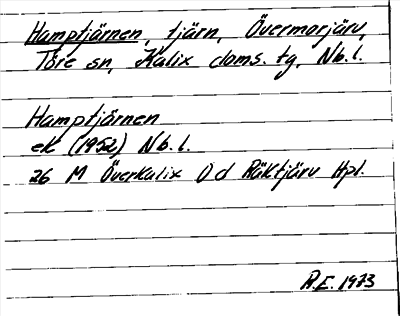 Hamptjärnen, tjärn, Övermorjärv,
Töre sn, Kalix doms. tg, Nb. l.
Hamptjärnen
ek (1952) Nb. l.
26 M Överkalix O d Räktjärv Hpl.
R.E. 1973